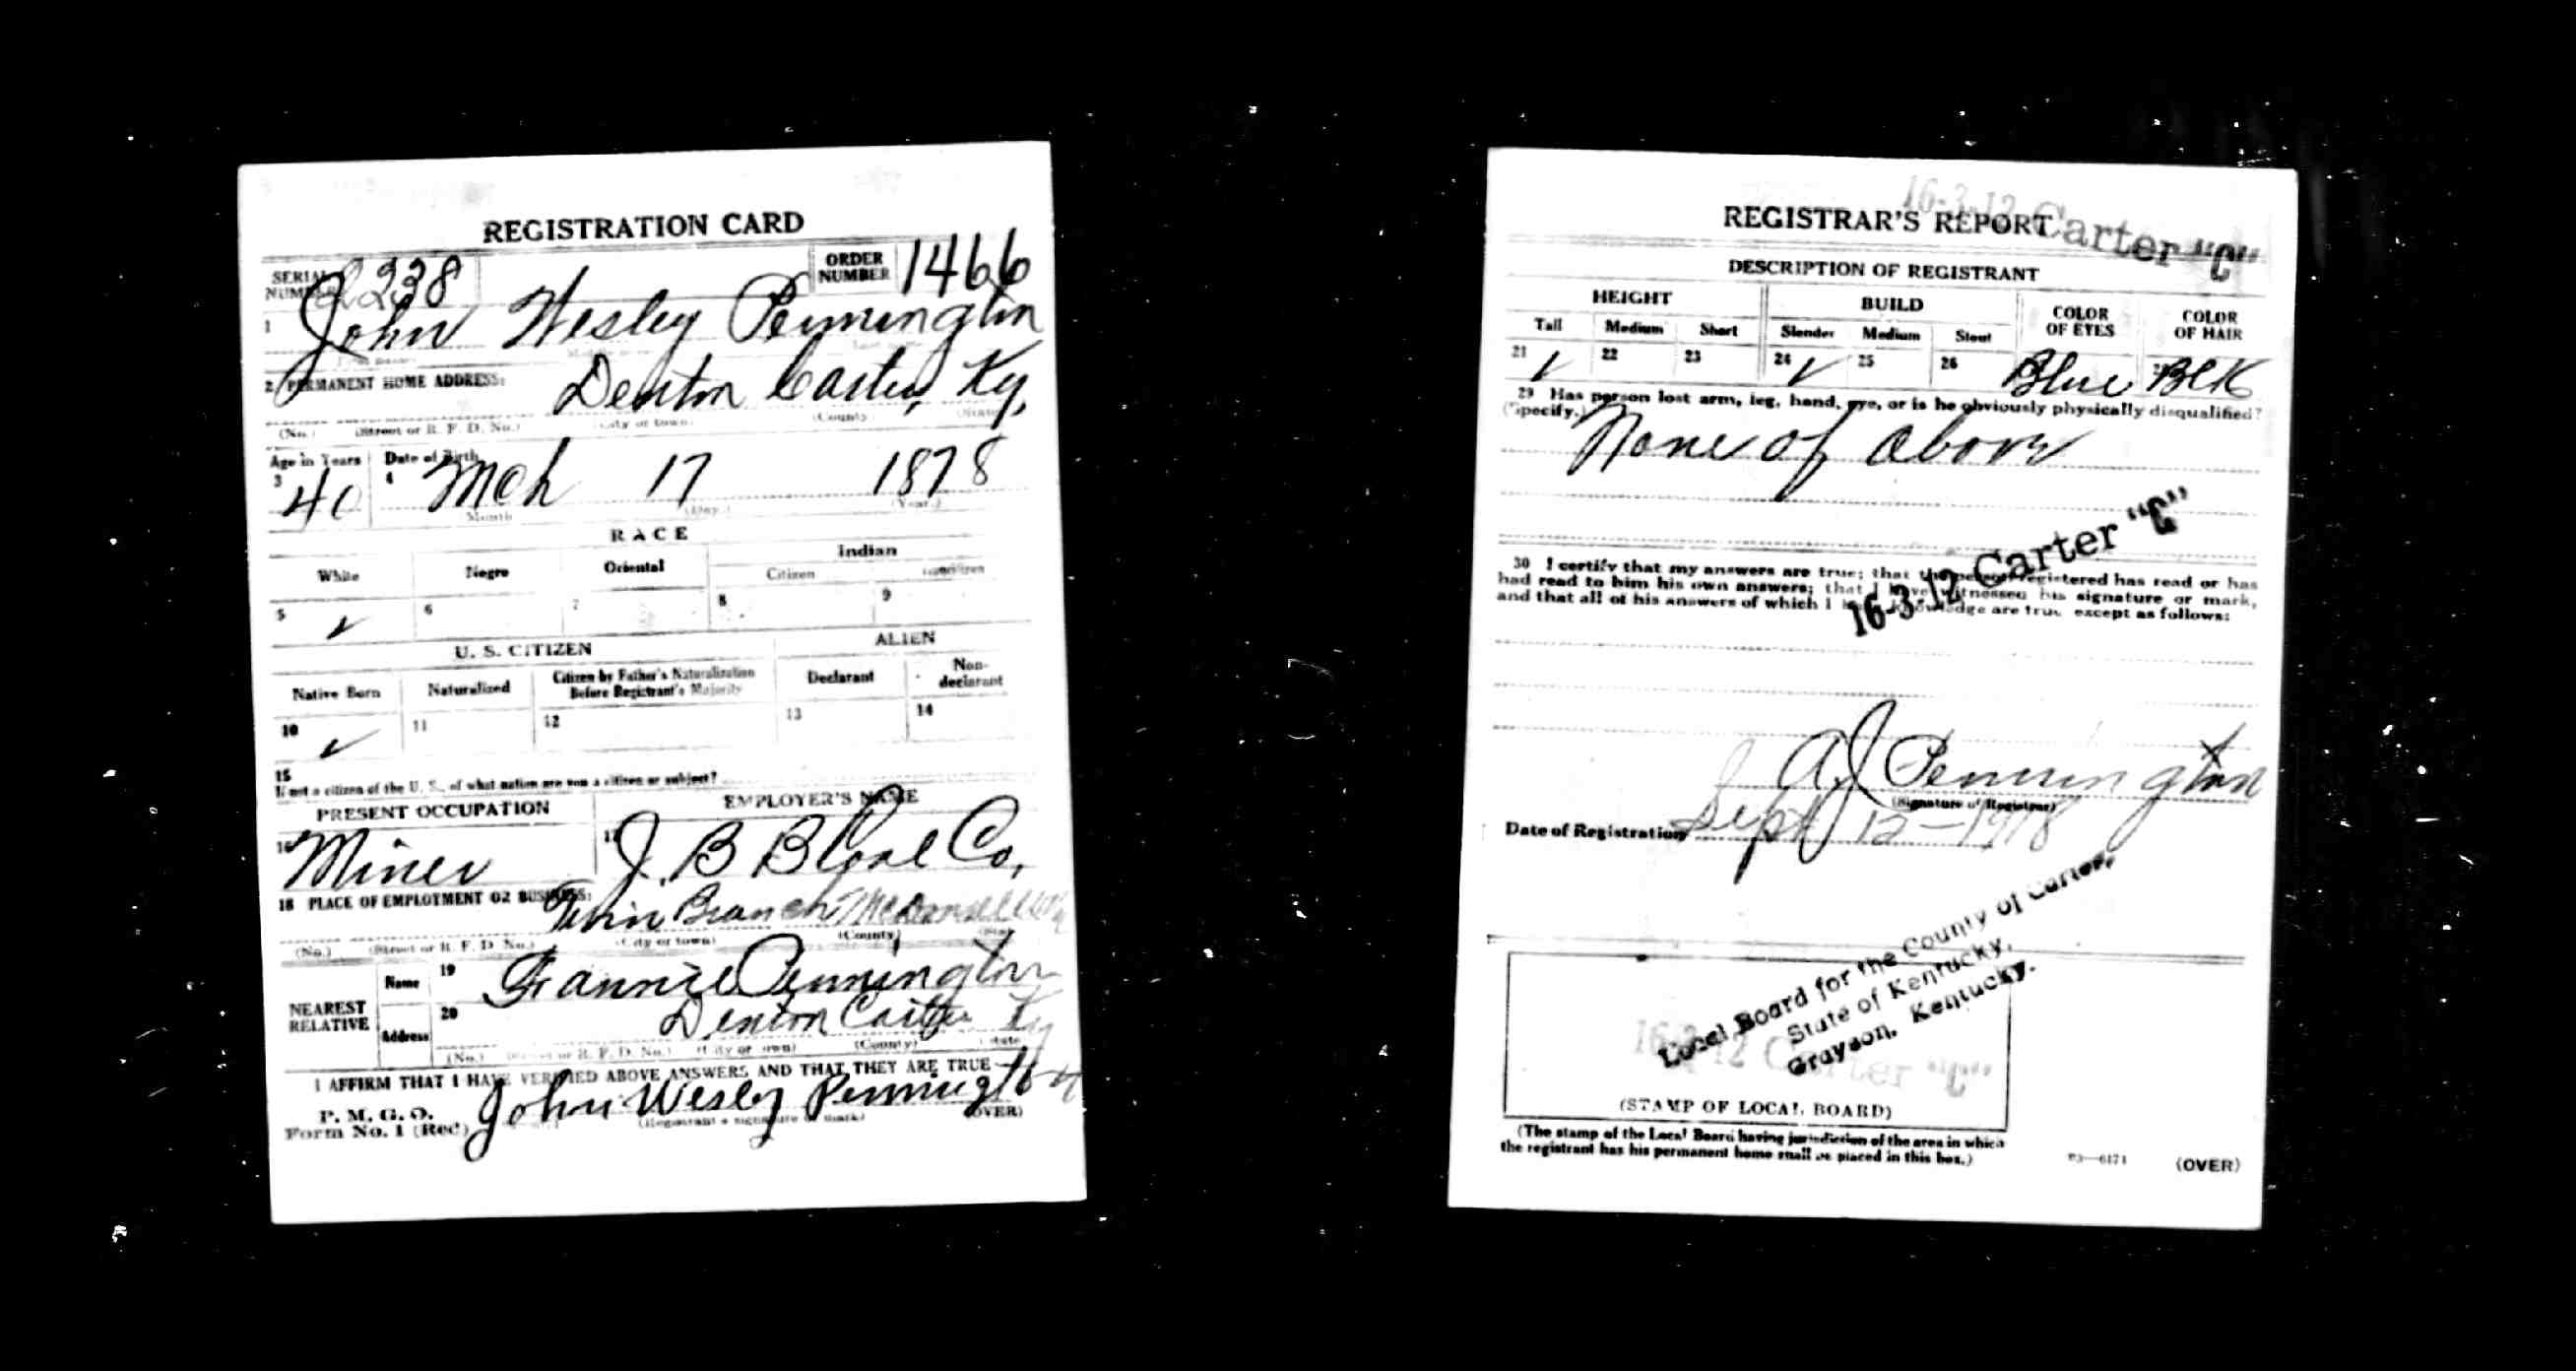 REGISTRATION CARD
SERIAL NUMBER 2238 ORDER NUMBER 1466
1 John Wesley Pennington
2 PERMANENT HOME ADDRESS:
Denton Carter, Ky,
(No.) (Street or R. F. D. No.) (City or town) (County) (State)
Age in Years Date of Birth
3 40 4 Mch 17 1878
Month (Day.) (Year.)
RACE
White Negro Oriental Indian
Citizen Noncitizen
5 ✓ 6 7 8 9
U. S. CITIZEN ALIEN
Native Born Naturalized Citizen by Father's Naturalization Before Registrant's Majority Declarant Non-declarant
10 ✓ 11 12 13 14
15
If not a citizen of the U. S., of what nation are you a citizen or subject?
PRESENT OCCUPATION EMPLOYER'S NAME
16 Miner 17 J. B B Coal Co,
18 PLACE OF EMPLOYMENT OR BUSINESS:
Branch McDowell
(No.) (Street or R. F. D. No.) (City or town) (County)
NEAREST RELATIVE
Name 19 Fannie Pennington
Address 20 Denton Carter Ky
(No.) (Street or R. F. D. No.) (City or town) (County) State
I AFFIRM THAT I HAVE VERIFIED ABOVE ANSWERS AND THAT THEY ARE TRUE
P. M. G. O.
Form No. 1 (Red) John Wesley Pennington
(Registrant's signature or mark) (OVER)
16-3-12 Carter "C"
REGISTRAR'S REPORT
DESCRIPTION OF REGISTRANT
HEIGHT BUILD COLOR OF EYES COLOR OF HAIR
Tall Medium Short Slender Medium Stout
21 ✓ 22 23 24 ✓ 25 26 Blue Blk
29 Has person lost arm, leg, hand, eye, or is he obviously physically disqualified?
(Specify.)
None of above
16-3-12 Carter "C"
30 I certify that my answers are true; that the person registered has read or has
had read to him his own answers; that I have witnessed his signature or mark,
and that all of his answers of which I have knowledge are true, except as follows:
A. J Pennington
(Signature of Registrar)
Date of Registration Sept 12-1918
Local Board for the County of Carter,
State of Kentucky,
Grayson, Kentucky.
16-3-12 Carter "C"
(STAMP OF LOCAL BOARD)
(The stamp of the Local Board having jurisdiction of the area in which
the registrant has his permanent home shall be placed in this box.)
(OVER)